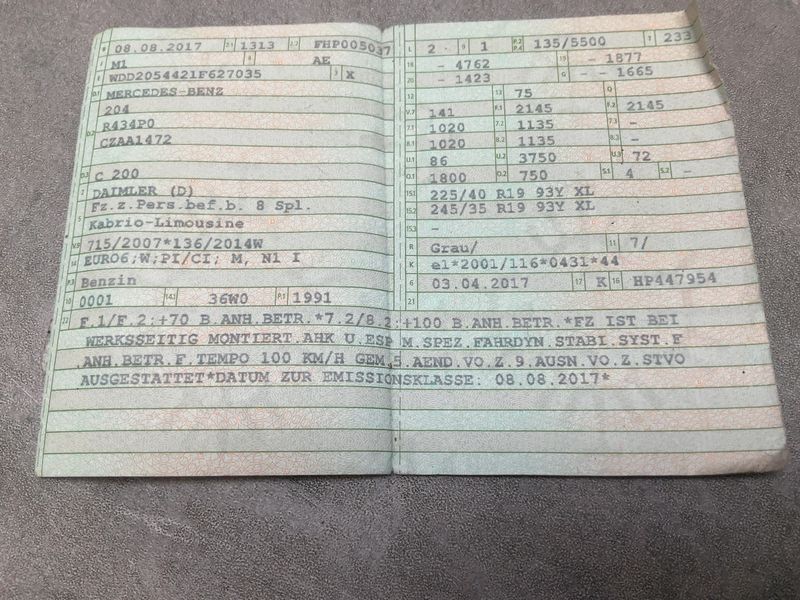 B 08.08.2017 2.1 1313 2.2 FHP005037
J M1 4 AE
E WDD2054421F627035 3 X
D.1 MERCEDES-BENZ
204
D.2 R434P0
CZAA1472
D.3 C 200
2 DAIMLER (D)
5 Fz.z.Pers.bef.b. 8 Spl.
Kabrio-Limousine
V.9 715/2007*136/2014W
14 EURO6;W;PI/CI; M, N1 I
P.3 Benzin
10 0001 14.1 36W0 P.1 1991
L 2 9 1 P.2 P.4 135/5500 T 233
18 - 4762 19 - 1877
20 - 1423 G - - 1665
12 13 75 Q
V.7 141 F.1 2145 F.2 2145
7.1 1020 7.2 1135 7.3 -
8.1 1020 8.2 1135 8.3 -
U.1 86 U.2 3750 U.3 72
O.1 1800 O.2 750 S.1 4 S.2 -
15.1 225/40 R19 93Y XL
15.2 245/35 R19 93Y XL
15.3 -
R Grau/ 11 7/
K e1*2001/116*0431*44
6 03.04.2017 17 K 16 HP447954
21
22 F.1/F.2:+70 B.ANH.BETR.*7.2/8.2:+100 B.ANH.BETR.*FZ IST BEI
WERKSSEITIG MONTIERT.AHK U.ESP M.SPEZ.FAHRDYN.STABI.SYST.F
.ANH.BETR.F.TEMPO 100 KM/H GEM.5.AEND.VO.Z.9.AUSN.VO.Z.STVO
AUSGESTATTET*DATUM ZUR EMISSIONSKLASSE: 08.08.2017*